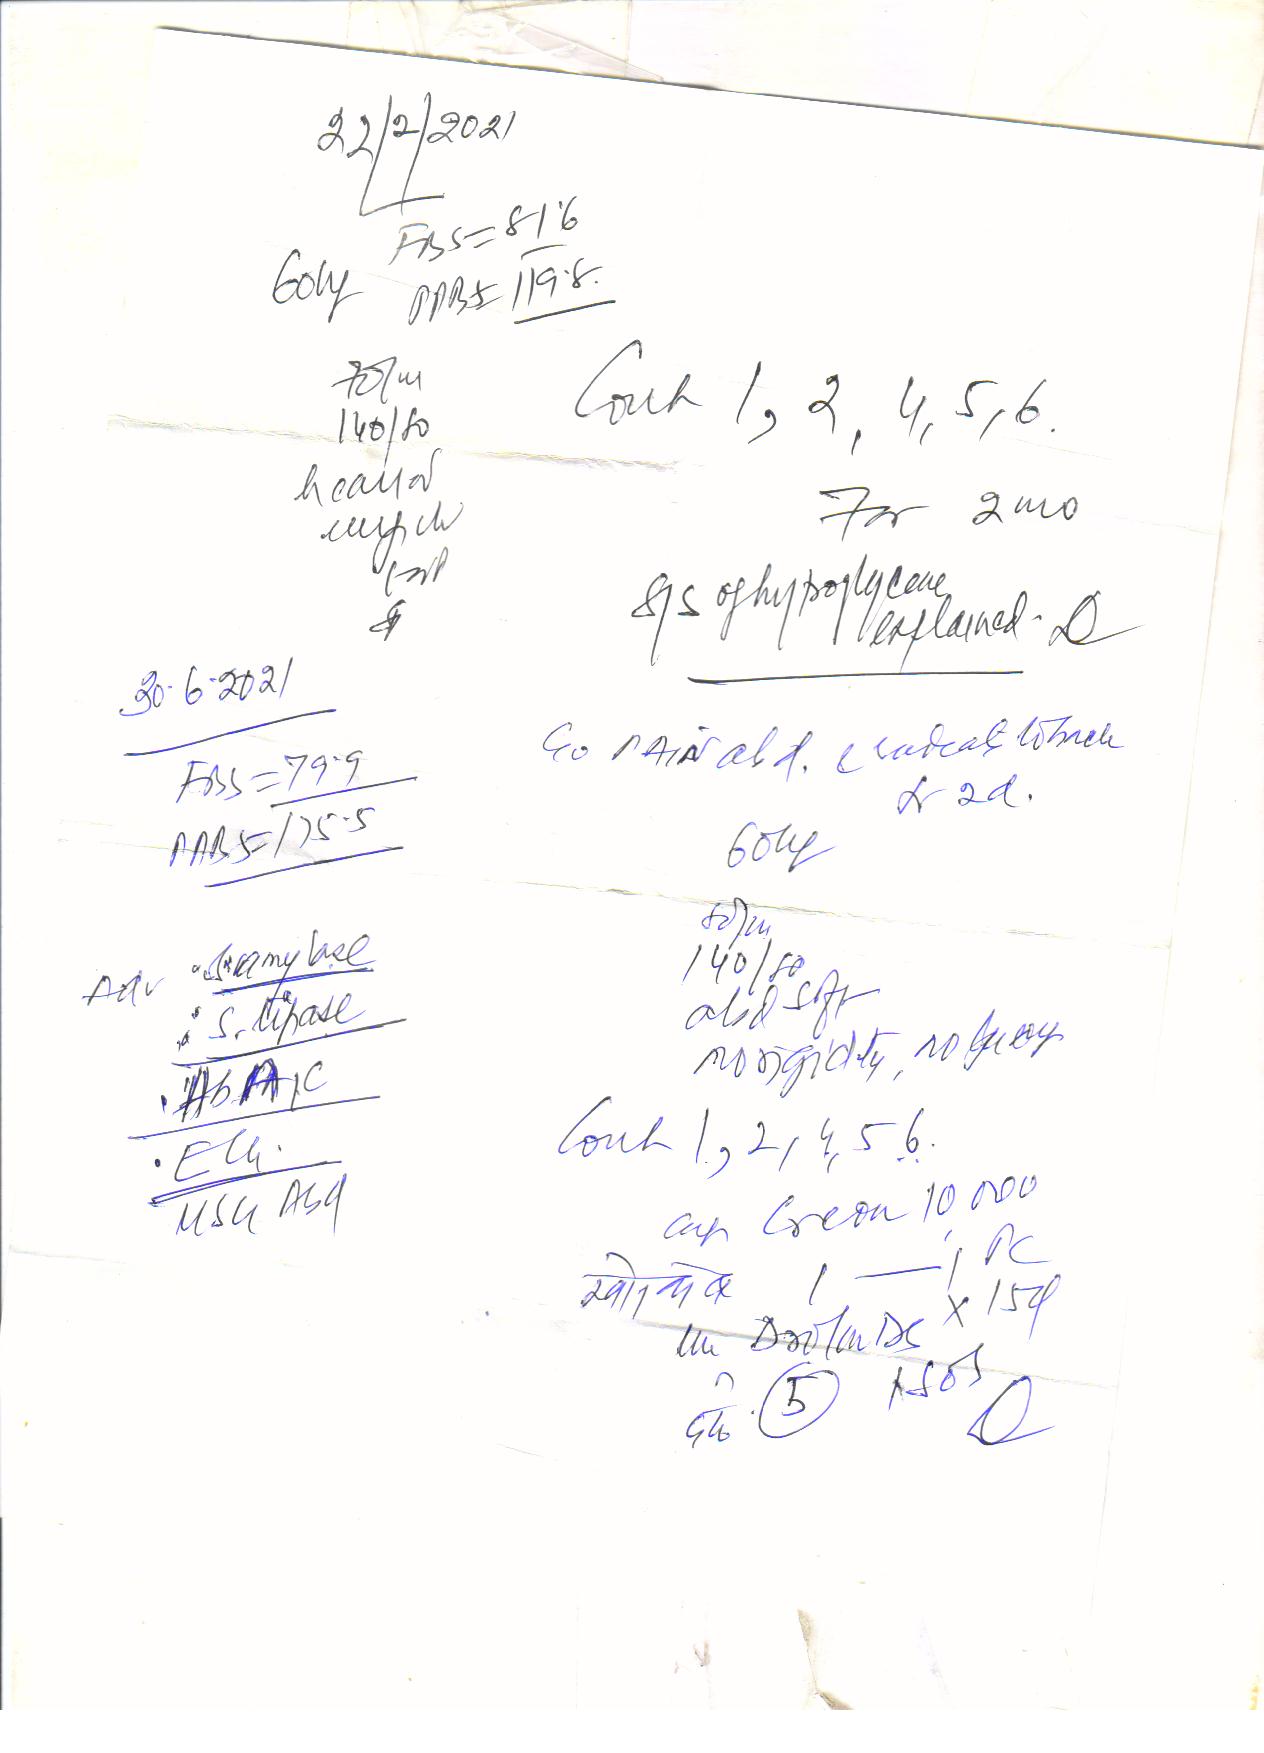 22/2/2021
FBS = 81.6
60kg PPBS = 119.8.
70/m
140/80
Cont 1, 2, 4, 5, 6.
For 2 mo
S/S of hypoglycene
explained.
30.6.2021
FBS = 79.9
PPBS = 175.5
C/o PAIN abd. radiat to back
2d.
60kg
80/m
140/80
abd soft
no rigidity, no
Adv . S. amylase
. S. lipase
. HbA1C
. ECG.
USG Abd
Cont 1, 2, 4, 5 6.
cap Creon 10,000
1 — 1 PC
x 15d
Drotin DS
x SOS
5